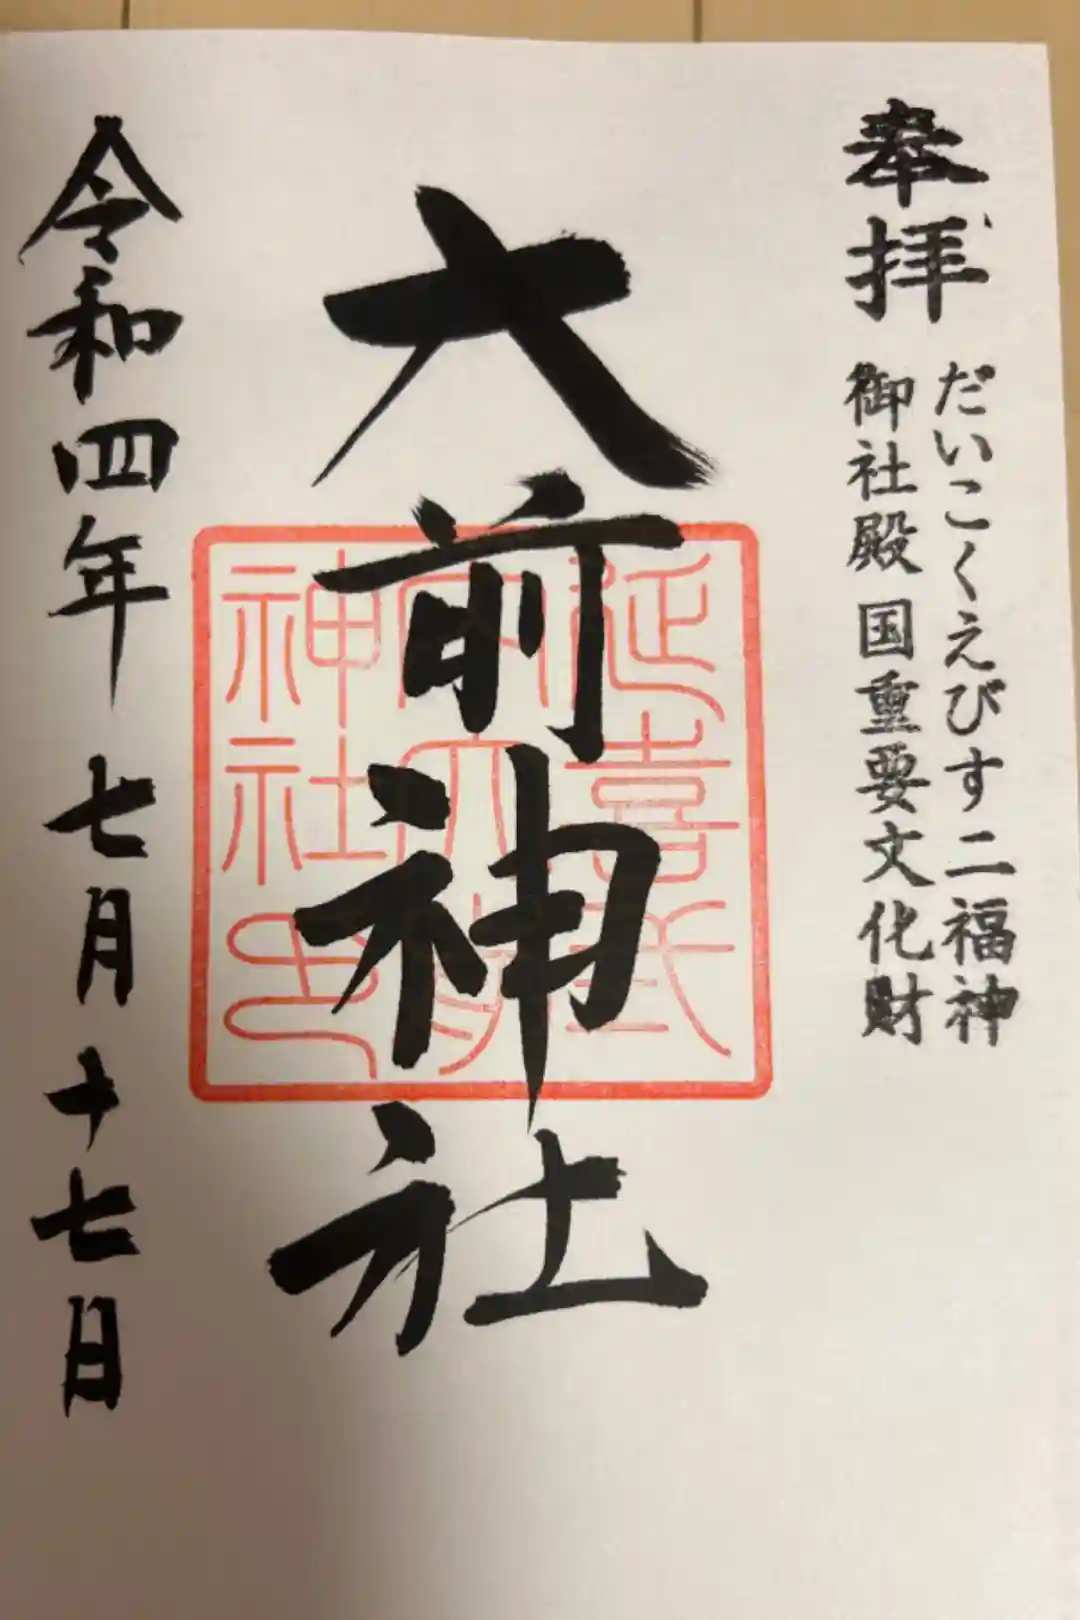 奉拝
だいこくえびす二福神
御社殿 国重要文化財
大前神社
延喜式
内大前
神社印
令和四年 七月 十七日